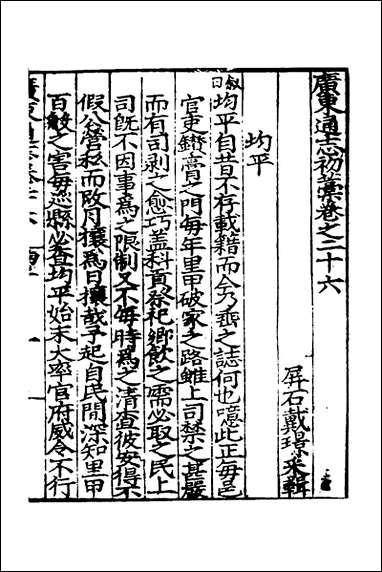 廣東通志初藁卷之二十六
屏石戴璟采輯
均平
叙曰均平自昔不存載籍而今乃乗之誌何也噫此正每邑
官吏鑽膏之門每年里甲破家之路雖上司禁之甚嚴
而有司剥之愈巧蓋科貢祭祀鄉飲之需必取之民上
司既不因事為之限制又不每時為之清查彼安得不
假公營私而改月攘為日攘哉予起自民間深知里甲
百般之害每巡縣必查均平始末大率官府威令不行